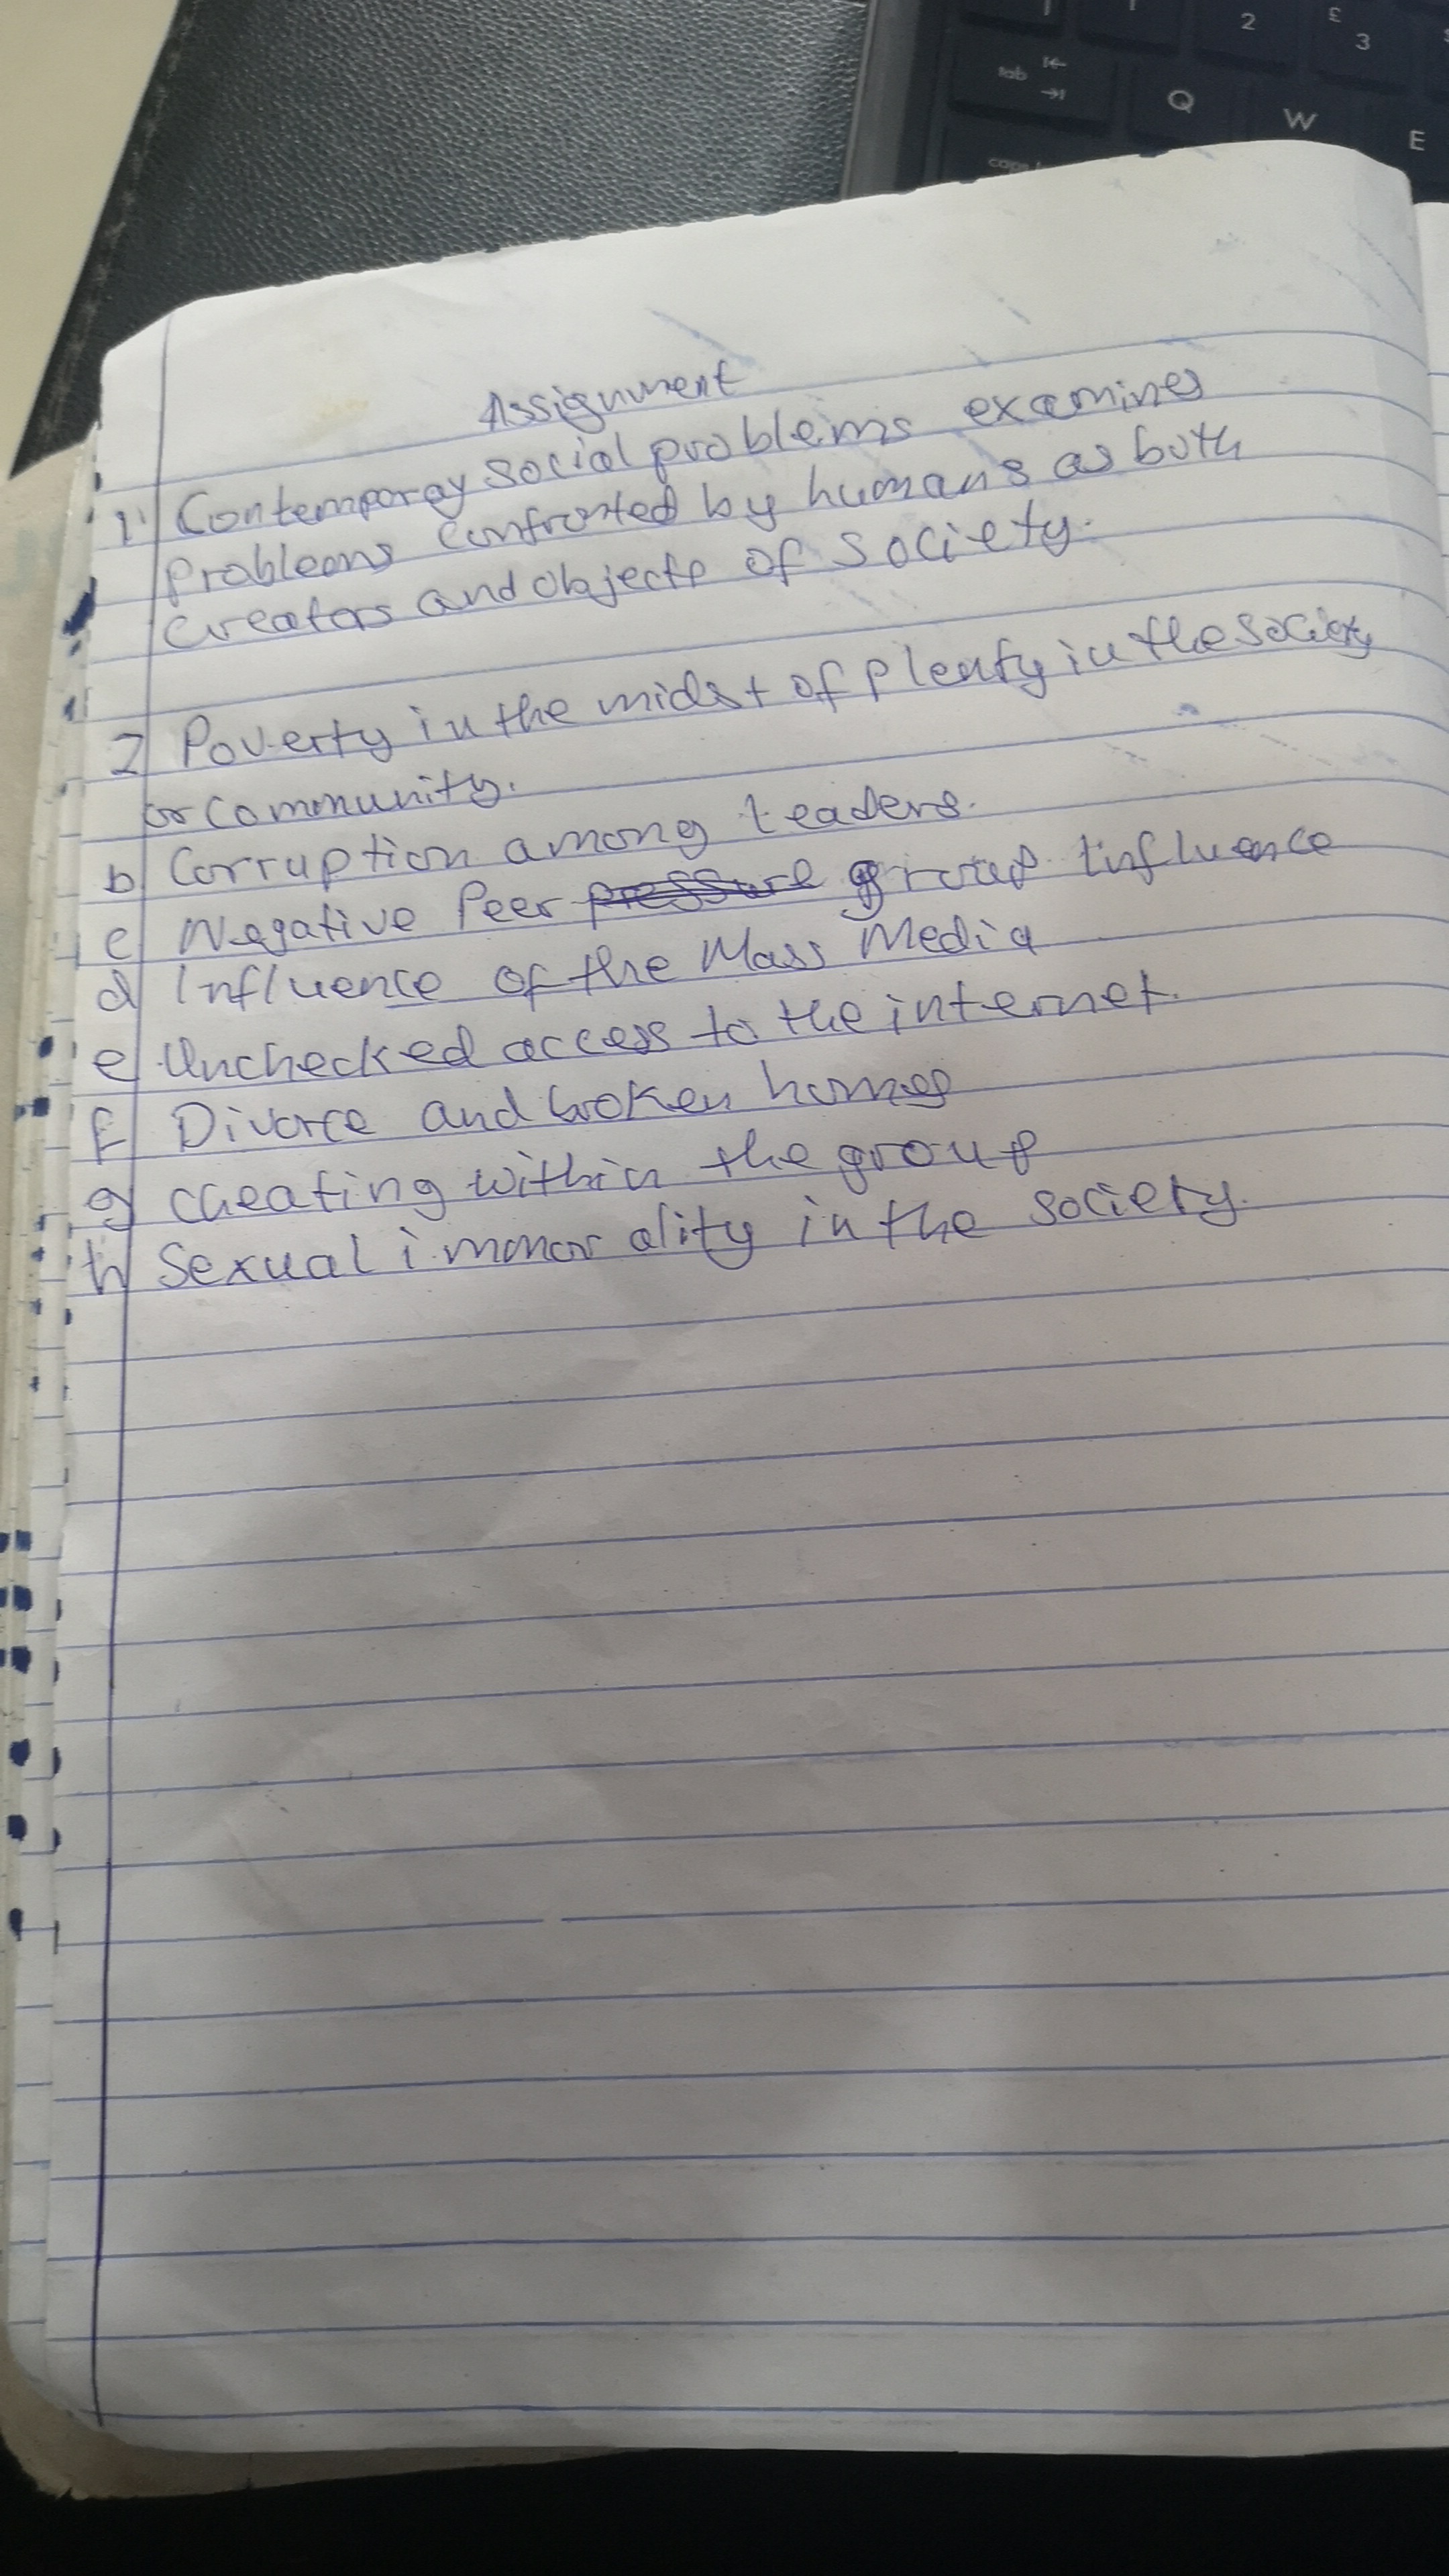 2
£
3
tab
Q
W
E
Assignment
1 Contemporay social problems examines
Problems confronted by humans as both
creators and objects of society.
2 Poverty in the midst of plenty in the society
or community.
b Corruption among leaders.
c Negative Peer pressure group influence
d Influence of the Mass Media
e Unchecked access to the internet.
f Divorce and broken homes
g cheating within the group
h Sexual immorality in the society.